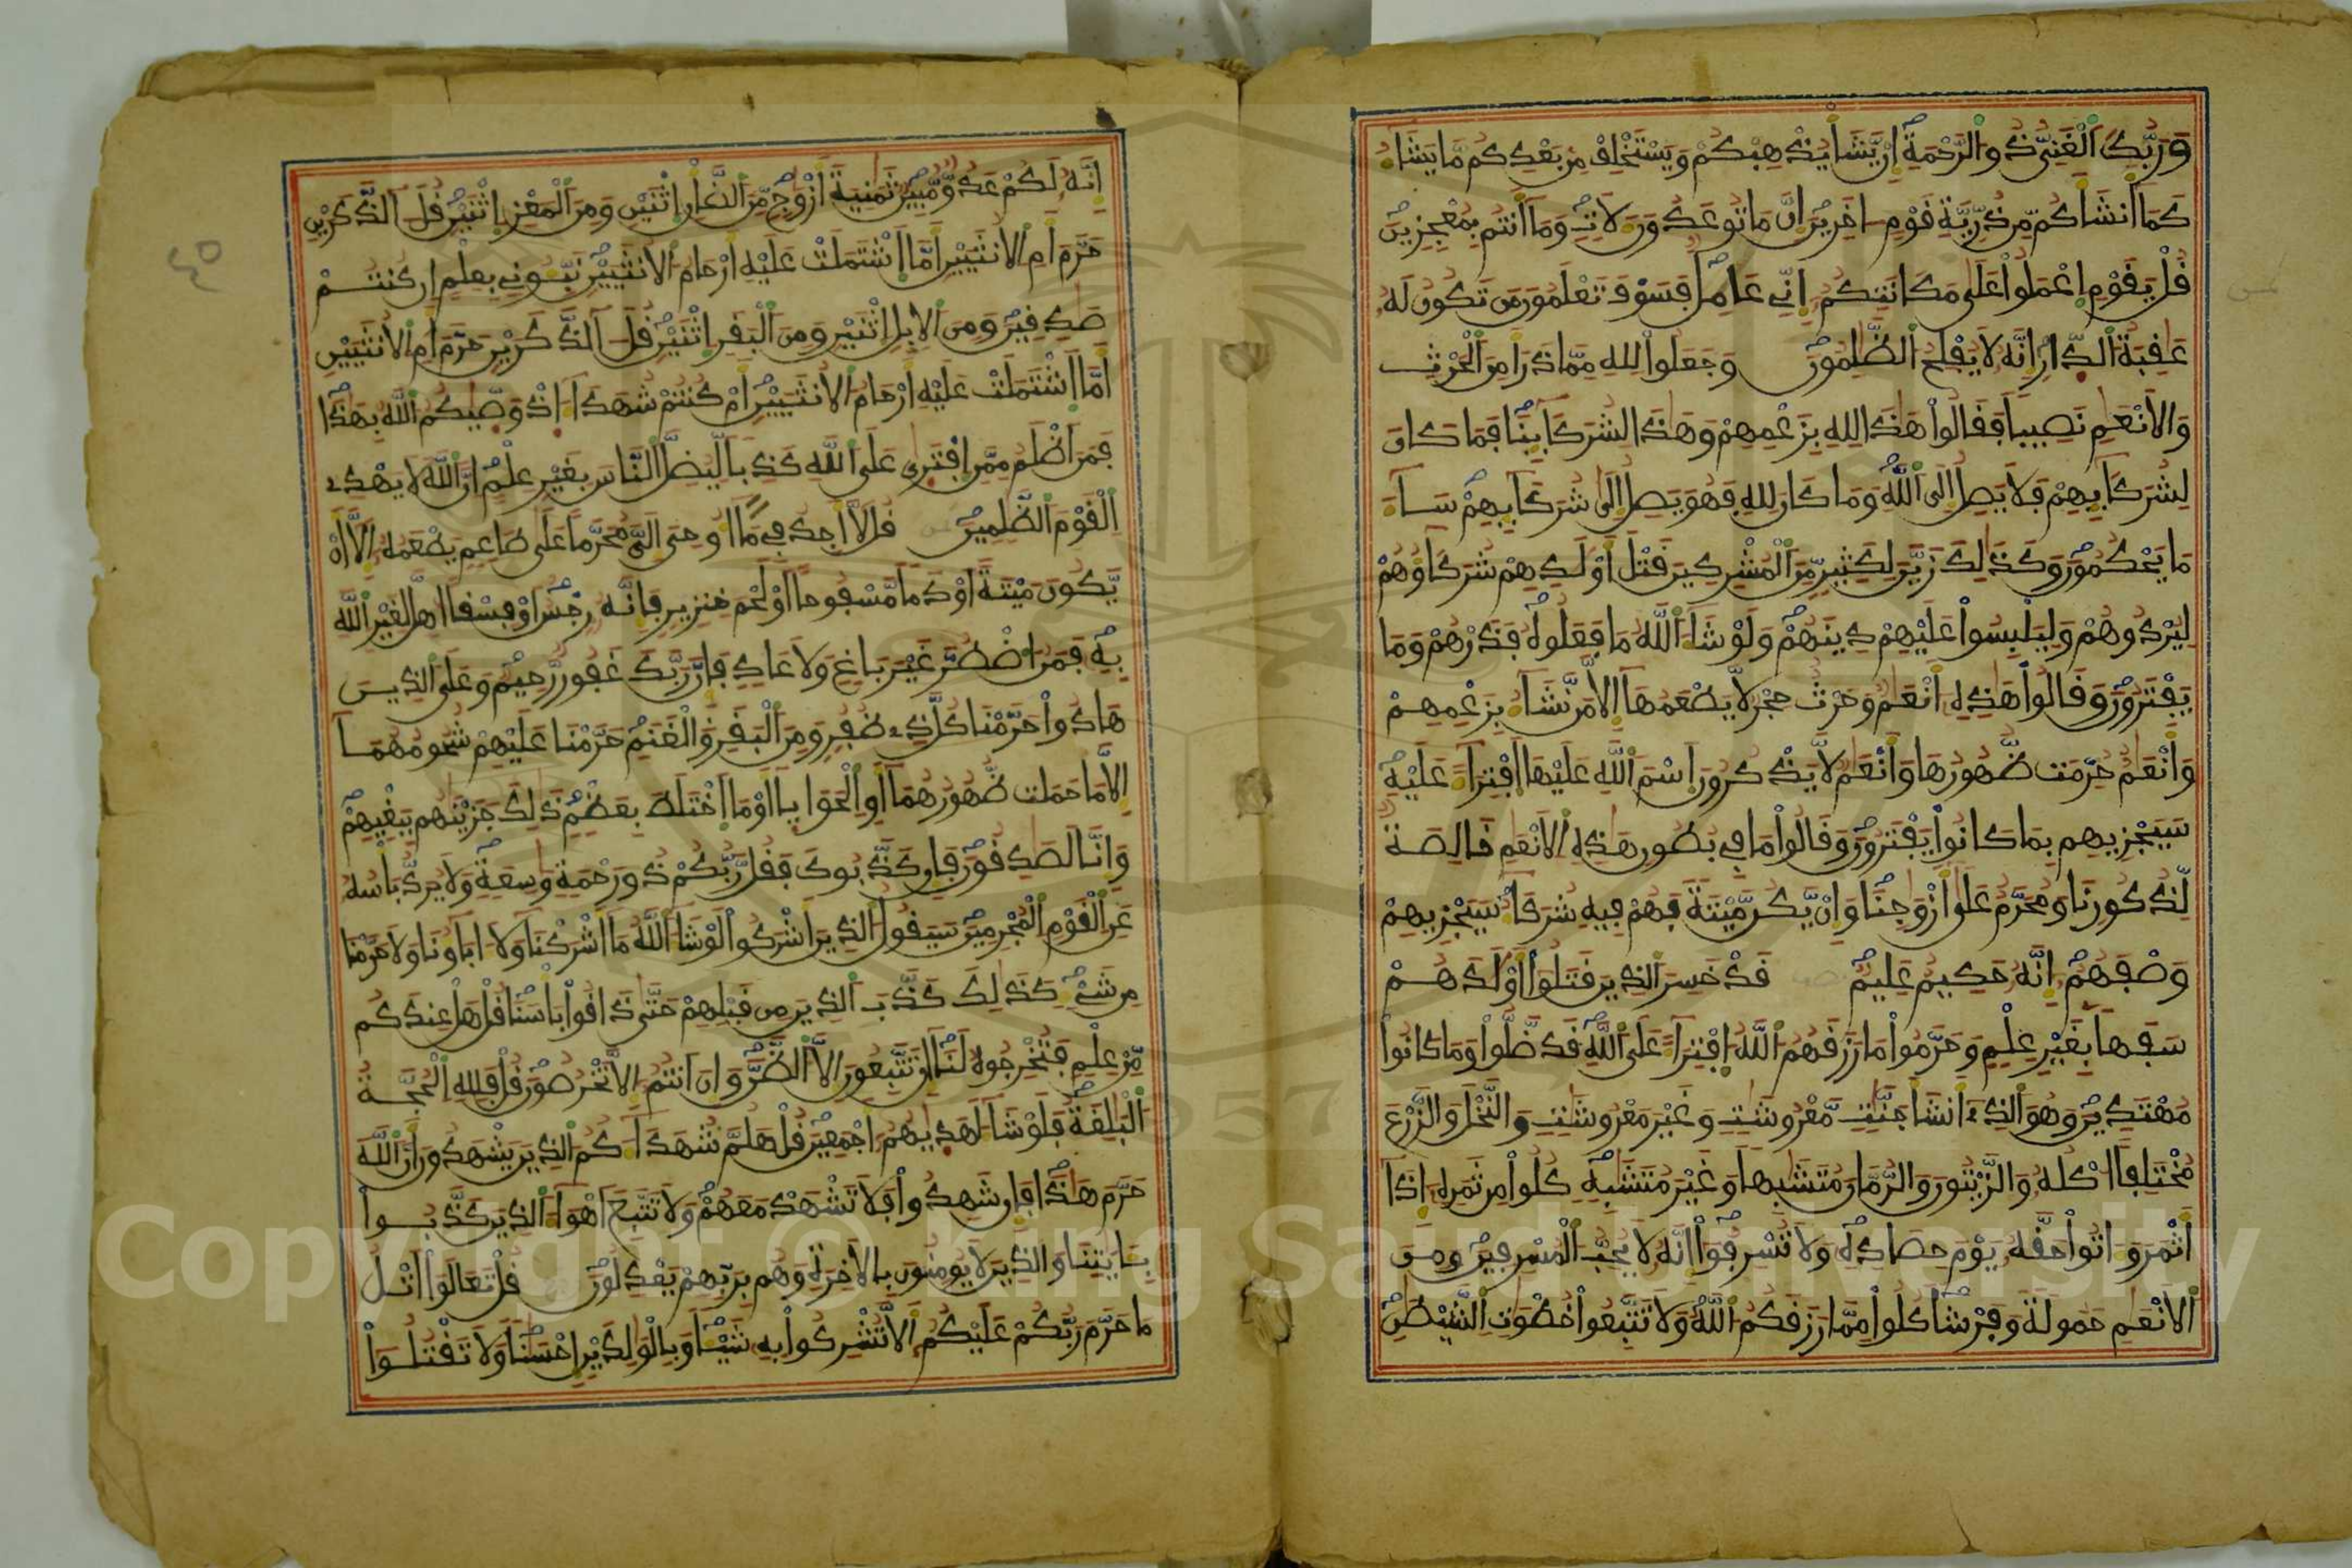 وَرَبُّكَ الْغَنِيُّ ذُو الرَّحْمَةِ إِنْ يَّشَأْ يُذْهِبْكُمْ وَيَسْتَخْلِفْ مِنْ بَعْدِكُم مَّا يَشَاءُ
كَمَا أَنشَأَكُم مِّن ذُرِّيَّةِ قَوْمٍ اخَرِينَ إِنَّ مَا تُوعَدُونَ لَاتٍ وَمَا أَنتُم بِمُعْجِزِينَ
قُلْ يَقَوْمِ اعْمَلُواْ عَلَى مَكَانَتِكُمْ إِنِّي عَامِلٌ فَسَوْفَ تَعْلَمُونَ مَن تَكُونُ لَهُ
عَقِبَةُ الدِّارِ إِنَّهُ لَا يُفْلِحُ الظَّلِمُونَ وَجَعَلُواْ لِلهِ مِمَّا ذَرَأَ مِنَ الْحَرْثِ
وَالْأَنْعَمِ نَصِيباً فَقَالُواْ هَذَا لِلهِ بِزَعْمِهِمْ وَهَذَا لِشُرَكَائِنَا فَمَا كَانَ
لِشُرَكَائِهِمْ فَلَا يَصِلُ إِلَى اللَّهِ وَمَا كَانَ لِلهِ فَهُوَ يَصِلُ إِلَى شُرَكَائِهِمْ سَاءَ
مَا يَحْكُمُونَ وَكَذَلِكَ زَيَّنَ لِكَثِيرٍ مِّنَ الْمُشْرِكِينَ قَتْلَ أَوْلَدِهِمْ شُرَكَاؤُهُمْ
لِيُرْدُوهُمْ وَلِيَلْبِسُواْ عَلَيْهِمْ دِينَهُمْ وَلَوْ شَاءَ اللَّهُ مَا فَعَلُوهُ فَذَرْهُمْ وَمَا
يَفْتَرُونَ وَقَالُواْ هَذِهِ أَنْعَمٌ وَحَرْثٌ حِجْرٌ لَّا يَطْعَمُهَا إِلَّا مَن نَّشَاءُ بِزَعْمِهِمْ
وَأَنْعَمٌ حُرِّمَتْ ظُهُورُهَا وَأَنْعَمٌ لَّا يَذْكُرُونَ اسْمَ اللَّهِ عَلَيْهَا افْتِرَاءً عَلَيْهِ
سَيَجْزِيهِم بِمَا كَانُواْ يَفْتَرُونَ وَقَالُواْ مَا فِي بُطُونِ هَذِهِ الْأَنْعَمِ خَالِصَةٌ
لِّذُكُورِنَا وَمُحَرَّمٌ عَلَى أَزْوَجِنَا وَإِنْ يَّكُن مَّيْتَةً فَهُمْ فِيهِ شُرَكَاءُ سَيَجْزِيهِمْ
وَصْفَهُمْ إِنَّهُ حَكِيمٌ عَلِيمٌ قَدْ خَسِرَ الذِينَ قَتَلُواْ أَوْلَدَهُمْ
سَفَهاً بِغَيْرِ عِلْمٍ وَحَرَّمُواْ مَا رَزَقَهُمُ اللَّهُ افْتِرَاءً عَلَى اللَّهِ قَد ضَّلُّواْ وَمَا كَانُواْ
مُهْتَدِينَ وَهُوَ الذِي أَنشَأَ جَنَّتٍ مَّعْرُوشَتٍ وَغَيْرَ مَعْرُوشَتٍ وَالنَّخْلَ وَالزَّرْعَ
مُخْتَلِفاً اكْلُهُ وَالزَّيْتُونَ وَالرُّمَّانَ مُتَشَبِهاً وَغَيْرَ مُتَشَبِهٍ كُلُواْ مِن ثَمَرِهِ إِذَا
أَثْمَرَ وَءَاتُواْ حَقَّهُ يَوْمَ حِصَادِهِ وَلَا تُسْرِفُواْ إِنَّهُ لَا يُحِبُّ الْمُسْرِفِينَ وَمِنَ
الْأَنْعَمِ حَمُولَةً وَفَرْشاً كُلُواْ مِمَّا رَزَقَكُمُ اللَّهُ وَلَا تَتَّبِعُواْ خُطْوَتِ الشَّيْطَنِ
إِنَّهُ لَكُمْ عَدُوٌّ مُّبِينٌ ثَمَنِيَةَ أَزْوَجٍ مِّنَ الضَّأْنِ اثْنَيْنِ وَمِنَ الْمَعْزِ اثْنَيْنِ قُلَ آلذَّكَرَيْنِ
حَرَّمَ أَمِ الْأُنثَيَيْنِ أَمَّا اشْتَمَلَتْ عَلَيْهِ أَرْحَامُ الْأُنثَيَيْنِ نَبِّئُونِي بِعِلْمٍ إِن كُنتُمْ
صَدِقِينَ وَمِنَ الْإِبِلِ اثْنَيْنِ وَمِنَ الْبَقَرِ اثْنَيْنِ قُلَ آلذَّكَرَيْنِ حَرَّمَ أَمِ الْأُنثَيَيْنِ
أَمَّا اشْتَمَلَتْ عَلَيْهِ أَرْحَامُ الْأُنثَيَيْنِ أَمْ كُنتُمْ شُهَدَاءَ إِذْ وَصَّيكُمُ اللَّهُ بِهَذَا
فَمَنَ أَظْلَمُ مِمَّنِ افْتَرَى عَلَى اللَّهِ كَذِباً لِّيُضِلَّ النَّاسَ بِغَيْرِ عِلْمٍ إِنَّ اللَّهَ لَا يَهْدِي
الْقَوْمَ الظَّلِمِينَ قُل لَّا أَجِدُ فِي مَا أُوحِيَ إِلَيَّ مُحَرَّماً عَلَى طَاعِمٍ يَطْعَمُهُ إِلَّا أَنْ
يَّكُونَ مَيْتَةً أَوْ دَماً مَّسْفُوحاً أَوْ لَحْمَ خِنزِيرٍ فَإِنَّهُ رِجْسٌ أَوْ فِسْقاً اهِلَّ لِغَيْرِ اللَّهِ
بِهِ فَمَنُ اضْطُرَّ غَيْرَ بَاغٍ وَلَا عَادٍ فَإِنَّ رَبَّكَ غَفُورٌ رَّحِيمٌ وَعَلَى الذِينَ
هَادُواْ حَرَّمْنَا كُلَّ ذِي ظُفُرٍ وَمِنَ الْبَقَرِ وَالْغَنَمِ حَرَّمْنَا عَلَيْهِمْ شُحُومَهُمَا
إِلَّا مَا حَمَلَت ظُّهُورُهُمَا أَوِ الْحَوَايَا أَوْ مَا اخْتَلَطَ بِعَظْمٍ ذَلِكَ جَزَيْنَهُم بِبَغْيِهِمْ
وَإِنَّا لَصَدِقُونَ فَإِن كَذَّبُوكَ فَقُل رَّبُّكُمْ ذُو رَحْمَةٍ وَسِعَةٍ وَلَا يُرَدُّ بَأْسُهُ
عَنِ الْقَوْمِ الْمُجْرِمِينَ سَيَقُولُ الذِينَ أَشْرَكُواْ لَوْ شَاءَ اللَّهُ مَا أَشْرَكْنَا وَلَا ءَابَاؤُنَا وَلَا حَرَّمْنَا
مِن شَيْءٍ كَذَلِكَ كَذَّبَ الذِينَ مِن قَبْلِهِمْ حَتَّى ذَاقُواْ بَأْسَنَا قُلْ هَلْ عِندَكُم
مِّنْ عِلْمٍ فَتُخْرِجُوهُ لَنَا إِن تَتَّبِعُونَ إِلَّا الظَّنَّ وَإِنَ أَنتُمُ إِلَّا تَخْرُصُونَ قُلْ فَلِلهِ الْحُجَّةُ
الْبَلِغَةُ فَلَوْ شَاءَ لَهَدَيكُمُ أَجْمَعِينَ قُلْ هَلُمَّ شُهَدَاءَكُمُ الذِينَ يَشْهَدُونَ أَنَّ اللَّهَ
حَرَّمَ هَذَا فَإِن شَهِدُواْ فَلَا تَشْهَدْ مَعَهُمْ وَلَا تَتَّبِعَ اهْوَاءَ الذِينَ كَذَّبُواْ
بِـَٔايَتِنَا وَالذِينَ لَا يُومِنُونَ بِالْأَخِرَةِ وَهُم بِرَبِّهِمْ يَعْدِلُونَ قُلْ تَعَالَوَاْ أَتْلُ
مَا حَرَّمَ رَبُّكُمْ عَلَيْكُمُ أَلَّا تُشْرِكُواْ بِهِ شَيْئاً وَبِالْوَلِدَيْنِ إِحْسَناً وَلَا تَقْتُلُواْ
٤٥
Copyright © King Saud University
1957